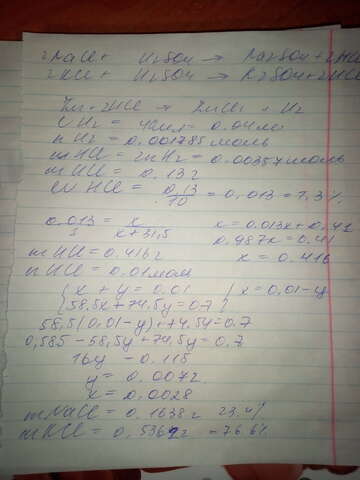 2NaCl + H2SO4 → Na2SO4 + 2HCl
2KCl + H2SO4 → K2SO4 + 2HCl
Zn + 2HCl → ZnCl2 + H2
VH2 = 40мл = 0.04л
nH2 = 0.001785моль
nHCl = 2nH2 = 0.00357моль
mHCl = 0.13г
WHCl = 0,13/10 = 0,013 = 1,3%
0.013/1 = x/x+31,5 x = 0.013x + 0.41
0,987x = 0.41
mHCl = 0.416г x = 0.416
nHCl = 0.01моль
{x + y = 0.01 / x = 0,01 - y
58,5x + 74,5y = 0.7
58,5(0,01 - y) + 74.5y = 0.7
0,585 - 58,5y + 74,5y = 0,7
16y = 0.115
y = 0,0072
x = 0,0028
mNaCl = 0.1638г 23.4%
mKCl = 0,5364г - 76.6%